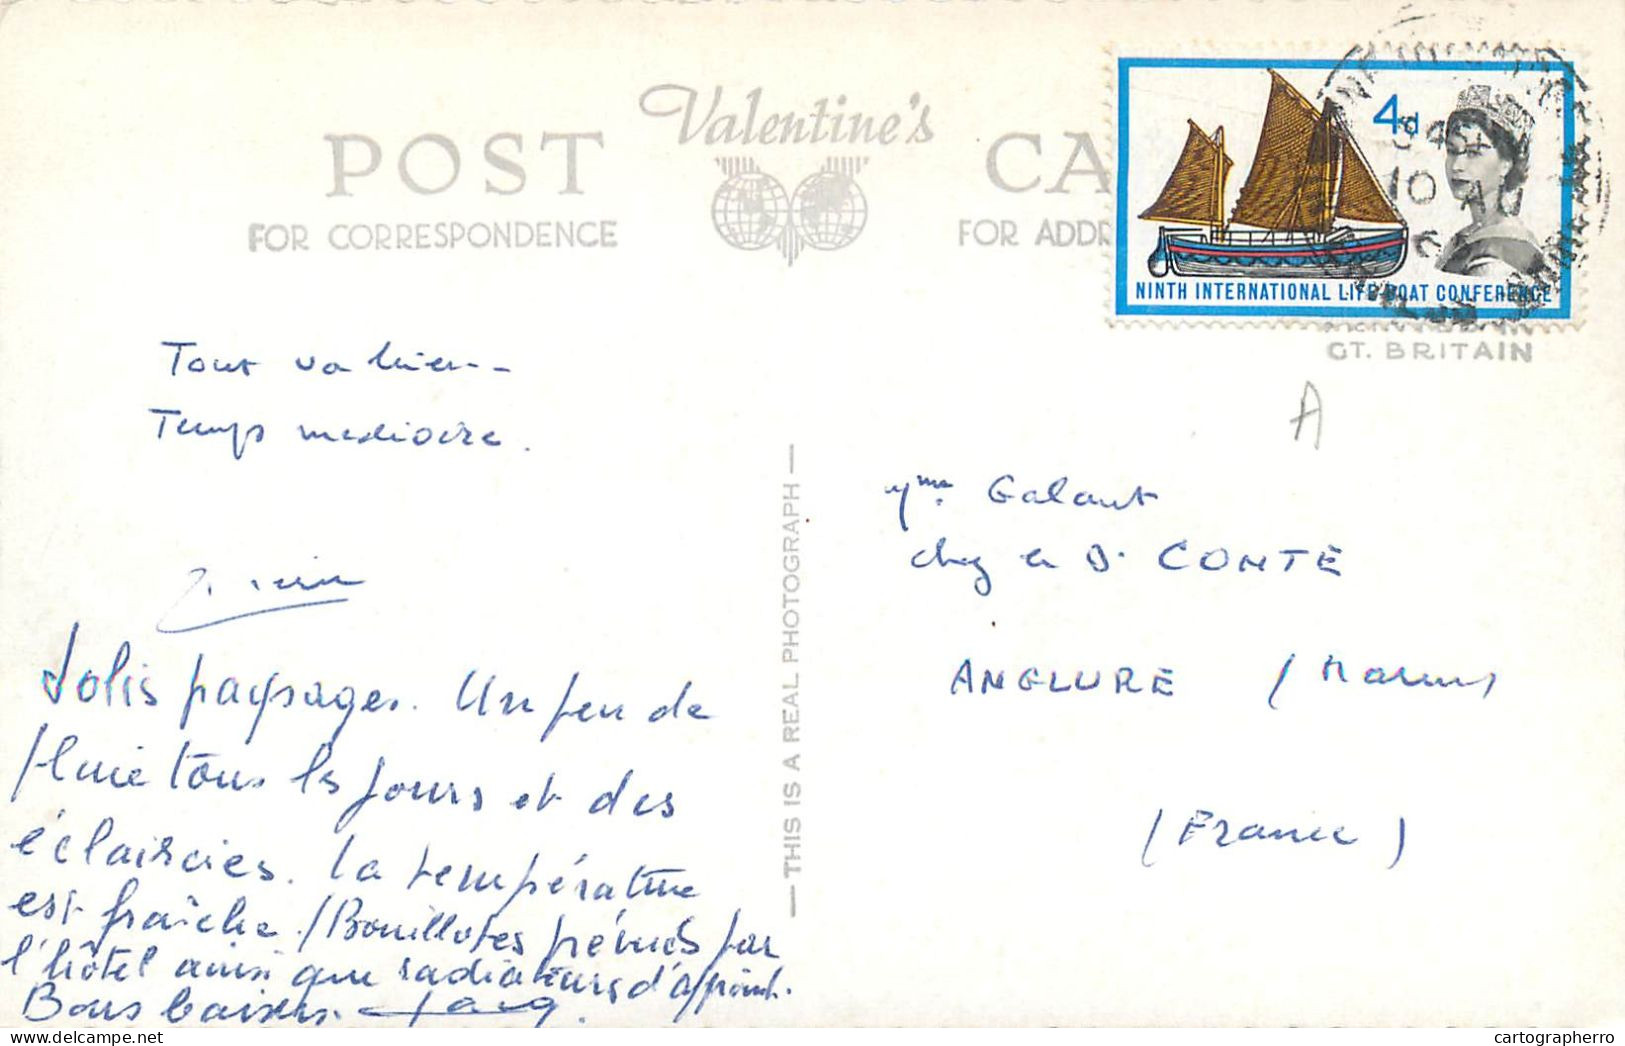 POST CA
Valentine's
FOR CORRESPONDENCE
FOR ADDR
4d
9 45
10 AU
NINTH INTERNATIONAL LIFEBOAT CONFERENCE
GT. BRITAIN
A
Tout va bien --
Temps mediocre.
Jolis paysages. Un peu de
pluie tous les jours et des
éclaircies. La température
est fraîche. (Bouillotes prévues par
l'hôtel ainsi que radiateurs d'appoint.
Bons baisers.
— THIS IS A REAL PHOTOGRAPH —
Mme Galaut
chez le Dr CONTE
ANGLURE (Marne)
(France)
cartographerro